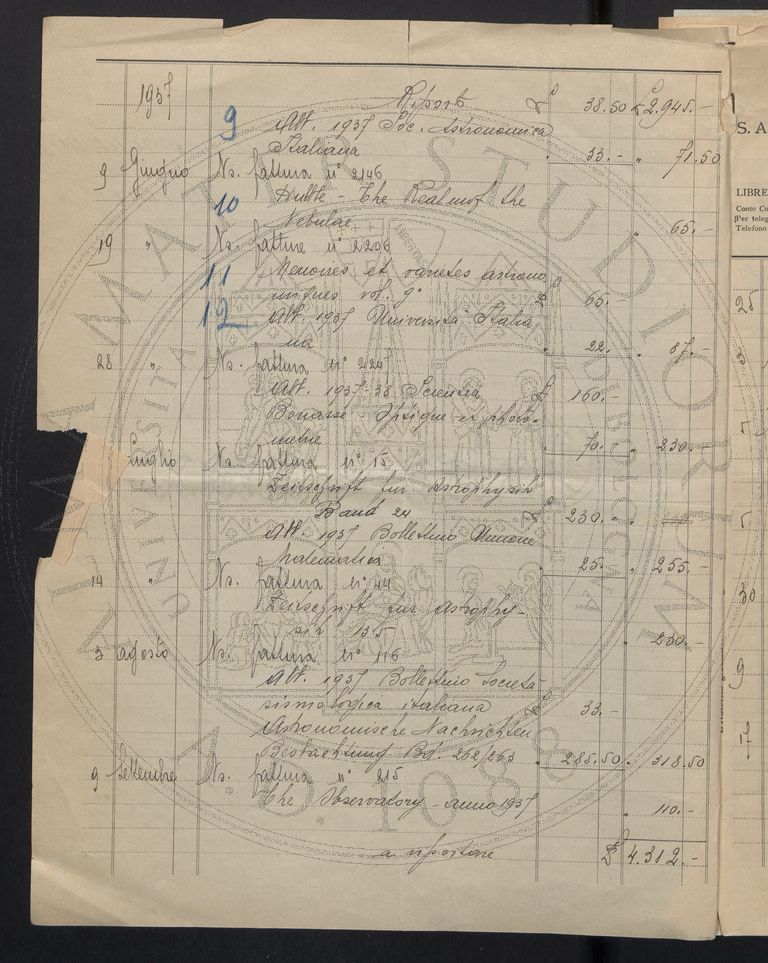 1937 Riporto £ 38.50 £ 2.945.-
9 Abb. 1937 Soc. Astronomica
Italiana " 33.- " 71.50
9 Giugno Ns. fattura n° 2146
10 Hubble - The Realm of the
Nebulae " 65.-
19 " Ns. fattura n° 2206
11 Memoires et varietes astrono
miques vol. 9° £ 65.-
12 Abb. 1937 Università Italia
na " 22.- " 87.-
28 " Ns. fattura n° 2247
Abb. 1937-38 Scientia £ 160.-
Bouasse - Optique et photo-
metrie " 70.- " 230.-
Luglio Ns. fattura n° 15
Zeitschrift fur Astrophysik
Band 24 £ 230.-
Abb. 1937 Bollettino Unione
matematica " 25.- " 255.-
14 " Ns. fattura n° 44
Zeitschrift fur Astrophy-
sik 13/5 " 230.-
3 agosto Ns. fattura n° 116
Abb. 1937 Bollettino Società
sismologica italiana £ 33.-
Astronomische Nachrichten
Beobachtung Bd. 262/263 " 285.50 " 318.50
9 Settembre Ns. fattura n° 215
The Observatory - anno 1937 " 110.-
a riportare £ 4.312.-
ALMA MATER STUDIORUM
UNIVERSITA DI BOLOGNA
A.D. 1088
S. A
LIBRE
Conto Co
Per teleg
Telefono
25
3
7
5
30
9
17